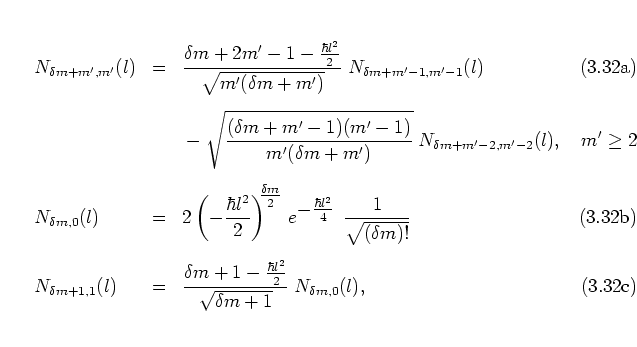 N_{δm+m′,m′}(l) = \frac{δm + 2m′ − 1 − \frac{ħl^2}{2}}{\sqrt{m′(δm + m′)}} N_{δm+m′−1,m′−1}(l) (3.32a)
− \sqrt{\frac{(δm + m′ − 1)(m′ − 1)}{m′(δm + m′)}} N_{δm+m′−2,m′−2}(l), m′ ≥ 2
N_{δm,0}(l) = 2 \left(−\frac{ħl^2}{2}\right)^{\frac{δm}{2}} e^{−\frac{ħl^2}{4}} \frac{1}{\sqrt{(δm)!}} (3.32b)
N_{δm+1,1}(l) = \frac{δm + 1 − \frac{ħl^2}{2}}{\sqrt{δm + 1}} N_{δm,0}(l), (3.32c)